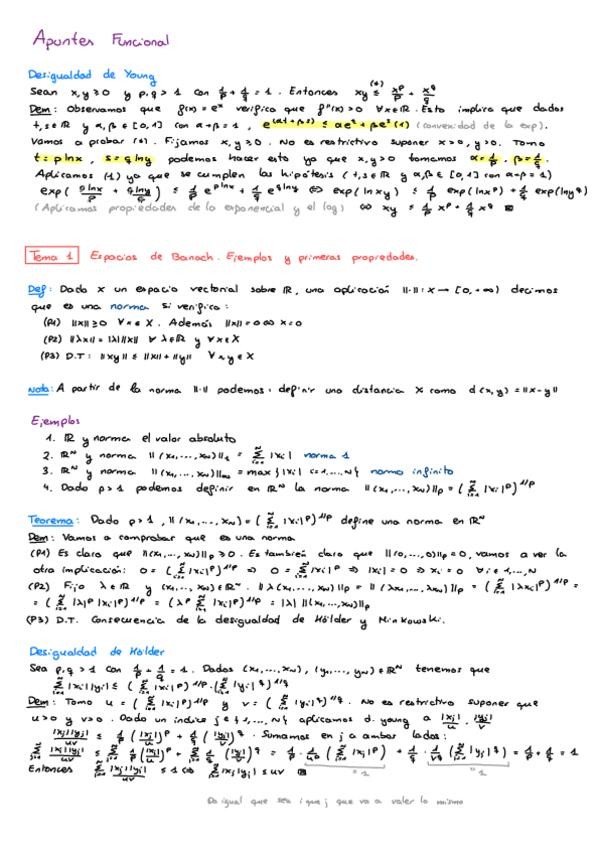 Apuntes Funcional
Desigualdad de Young
Sean x,y ≥ 0 y p,q > 1 con 1/p + 1/q = 1. Entonces xy ≤^(*) x^p/p + x^q/q
Dem: Observamos que f(x) = e^x verifica que f''(x) > 0 ∀x∈ℝ. Esto implica que dados
t,s∈ℝ y α,β ∈ [0,1] con α+β = 1, e^(αt+βs) ≤ αe^t + βe^s (1) (convexidad de la exp).
Vamos a probar (*). Fijamos x,y ≥ 0. No es restrictivo suponer x>0, y>0. Tomo
t = p lnx, s = q lny podemos hacer esto ya que x,y>0 tomamos α = 1/p, β = 1/q.
Aplicamos (1) ya que se cumplen las hipótesis (t,s∈ℝ y α,β ∈ [0,1] con α+β = 1)
exp( p lnx/p + q lny/q ) ≤ 1/p e^(p lnx) + 1/q e^(q lny) ⇔ exp(ln xy) ≤ 1/p exp(lnx^p) + 1/q exp(lny^q)
(Aplicamos propiedades de la exponencial y el log) ⇔ xy ≤ 1/p x^p + 1/q x^q
Tema 1 Espacios de Banach. Ejemplos y primeras propiedades.
Def: Dado X un espacio vectorial sobre ℝ, una aplicación ||·||: X → [0,+∞) decimos
que es una norma si verifica:
(P1) ||x|| ≥ 0 ∀x∈X. Además ||x|| = 0 ⇔ x=0
(P2) ||λx|| = |λ| ||x|| ∀ λ∈ℝ y ∀x∈X
(P3) D.T: ||xy|| ≤ ||x|| + ||y|| ∀x,y∈X
Nota: A partir de la norma ||·|| podemos definir una distancia X como d(x,y) = ||x-y||
Ejemplos
1. ℝ y norma el valor absoluto
2. ℝ^N y norma ||(x₁,...,x_N)||₁ = Σ_{i=1}^N |xᵢ| norma 1
3. ℝ^N y norma ||(x₁,...,x_N)||_∞ = max{|xᵢ| i=1,...,N} norma infinito
4. Dado p>1 podemos definir en ℝ^N la norma ||(x₁,...,x_N)||_p = (Σ_{i=1}^N |xᵢ|^p)^1/p
Teorema: Dado p>1, ||(x₁,...,x_N) = (Σ_{i=1}^N |xᵢ|^p)^1/p define una norma en ℝ^N
Dem: Vamos a comprobar que es una norma
(P1) Es claro que ||(x₁,...,x_N)||_p ≥ 0. Es también claro que ||(0,...,0)||_p = 0, vamos a ver la
otra implicación: 0 = (Σ_{i=1}^N |xᵢ|^p)^1/p ⇒ 0 = Σ_{i=1}^N |xᵢ|^p ⇒ |xᵢ| = 0 ⇒ xᵢ = 0 ∀ i=1,...,N
(P2) Fijo λ∈ℝ y (x₁,...,x_N)∈ℝ^N. ||λ(x₁,...,x_N)||_p = ||(λx₁,...,λx_N)||_p = (Σ_{i=1}^N |λxᵢ|^p)^1/p =
= (Σ_{i=1}^N |λ|^p |xᵢ|^p)^1/p = (λ^p Σ_{i=1}^N |xᵢ|^p)^1/p = |λ| ||(x₁,...,x_N)||_p
(P3) D.T. Consecuencia de la desigualdad de Hölder y Minkowski.
Desigualdad de Hölder
Sea p,q > 1 con 1/p + 1/q = 1. Dados (x₁,...,x_N), (y₁,...,y_N)∈ℝ^N tenemos que
Σ_{i=1}^N |xᵢ||yᵢ| ≤ (Σ_{i=1}^N |xᵢ|^p)^1/p · (Σ_{i=1}^N |yᵢ|^q)^1/q
Dem: Tomo u = (Σ_{i=1}^N |xᵢ|^p)^1/p y v = (Σ_{i=1}^N |yᵢ|^q)^1/q. No es restrictivo suponer que
u>0 y v>0. Dado un índice j∈{1,...,N} aplicamos d. young a |xj|/u, |yj|/v
|xj||yj|/uv ≤ 1/p (|xj|/u)^p + 1/q (|yj|/v)^q. Sumamos en j a ambos lados:
Σ_{j=1}^N |xj||yj|/uv ≤ Σ_{j=1}^N 1/p (|xj|/u)^p + Σ_{j=1}^N 1/q (|yj|/v)^q = 1/p · 1/u^p (Σ_{j=1}^N |xj|^p) + 1/q · 1/v^q (Σ_{j=1}^N |yj|^q) = 1/p + 1/q = 1
=1 =1
Entonces Σ_{j=1}^N |xj||yj|/uv ≤ 1 ⇔ Σ_{j=1}^N |xj||yj| ≤ uv
Da igual que sea i que j que va a valer lo mismo